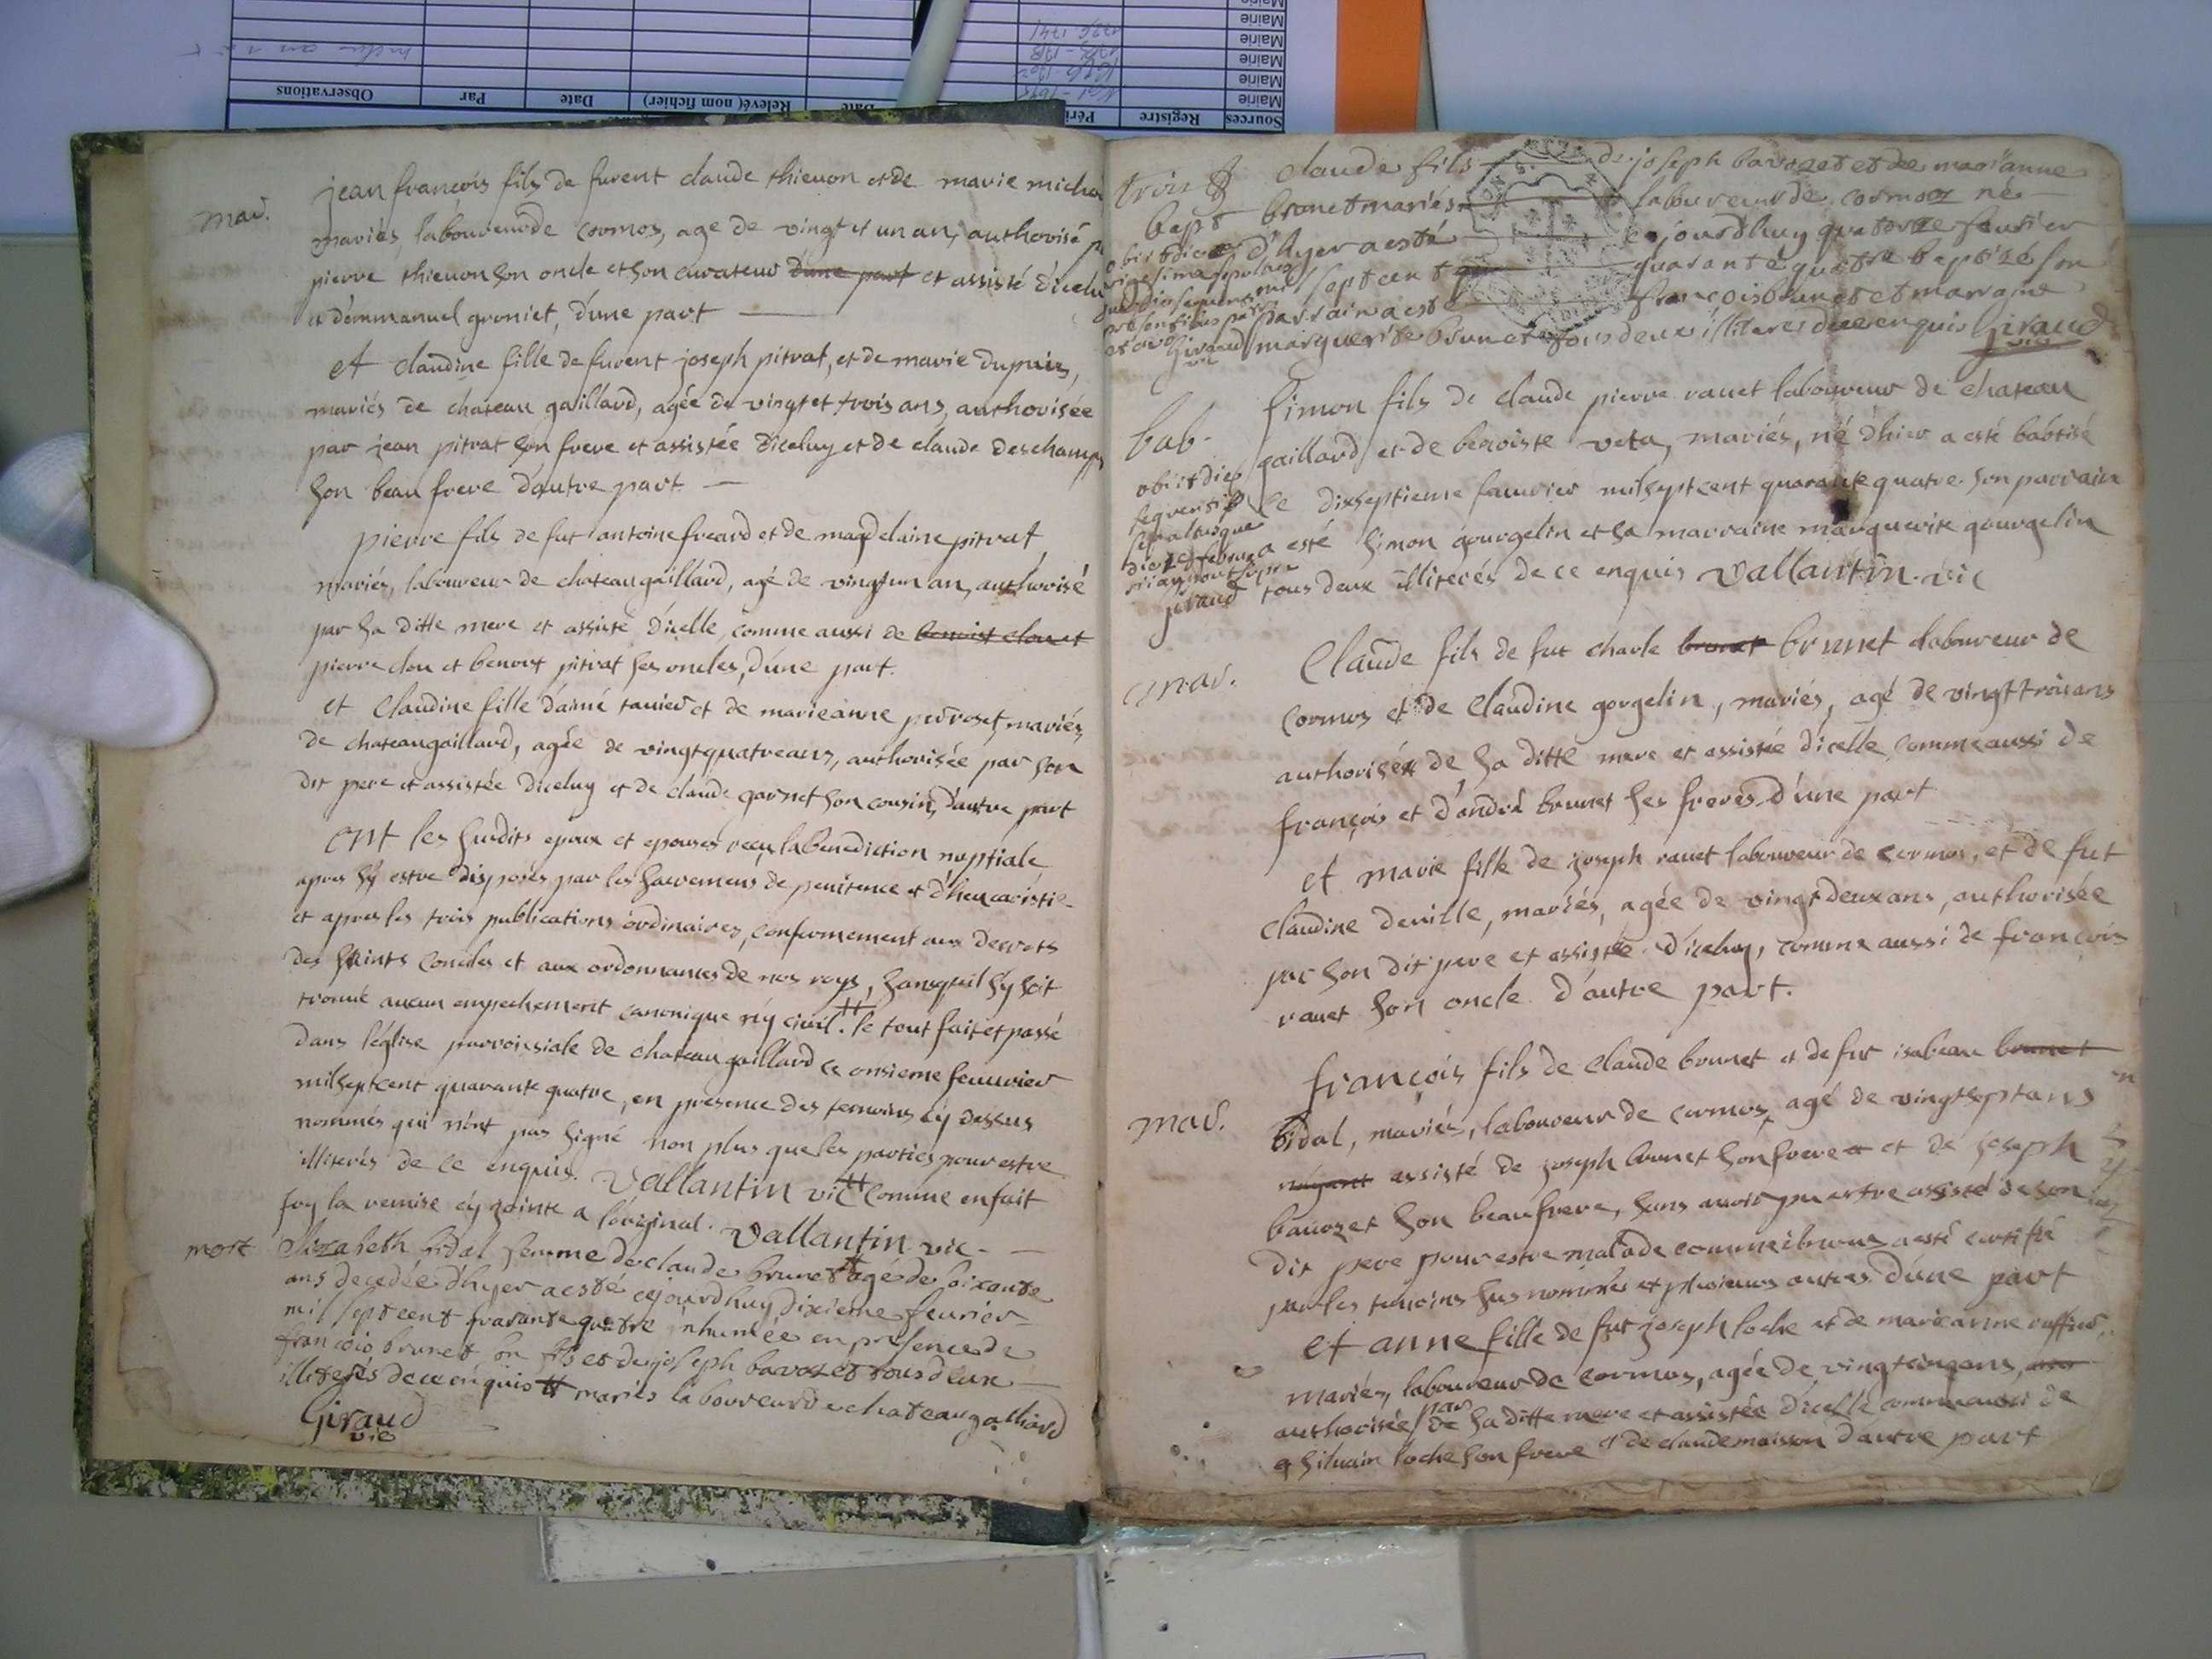 Mairie
Mairie
Mairie
Mairie
Mairie
1726-1741
Sources Registre Péri Date Relevé( nom fichier) Date Par Observations
mar.
jean françois fils de furent claude thieuon et de marie micho
mariés, laboureur de cormos, age de vingt et un an, authorisé p
pierre thieuon son oncle et son curateur dune part et assisté d'icelu
et d'emmanuel groniet, d'une part
et claudine fille de furent joseph pitrat, et de marie dupuis,
mariés de chateau gaillard, agée de vingt et trois ans, authorisée
par jean pitrat son frere et assistée d'iceluy et de claude deschamps
son beau frere d'autre part
pierre fils de fut antoine freard et de magdelaine pitrat
mariés, laboureur de chateaugaillard, agé de vingtun an, authorisé
par sa ditte mere et assisté d'icelle, comme aussi de benoist clou et
pierre clou et benoist pitrat ses oncles, d'une part.
et claudine fille d'aimé tanier et de marieanne perroset, mariés
de chateaugaillard, agée de vingtquatreans, authorisée par son
dit pere et assistée d'iceluy et de claude garnet son cousin, d'autre part
ont les susdits epoux et epouses reçu la benediction nuptiale
apres s'y estre disposés par les sacremens de penitence et d'heucaristie
et apres les trois publications ordinaires, conformement aux decrets
des saints conciles et aux ordonnances de nos roys, sansqu'il s'y soit
trouué aucun empechement canonique n'y ciuil. le tout fait et passé
dans l'église parroissiale de chateaugaillard ce onsieme feuurier
milseptcent quarante quatre, en presence des temoins cy dessus
nommés qui n'ont pas signé non plus que les parties pour estre
illiterés de ce enquis. Vallantin vic comme en fait
foy la remise cy jointe a l'original. Vallantin vic
mort
Elizabeth bidal femme de claude brunet agé de soixante
ans decedée d'hyer a esté cejourdhuy dixieme feurier
mil sept cent quarante quatre inhumée en presence de
françois brunet son fils et de joseph bavozet tous deux
illiterés de ce enquis mariés laboureur de chateaugalliard
Giraud
vic
trois
bapt
claude fils de joseph bavozet et de marianne
brunet mariés laboureur de cormoz né
d'hyer a esté cejourdhuy quatorze feurier
mil sept cent quarante quatre baptizé son
parrain a esté françois brunet et marraine
marguerite brunet tous deux illiteres de ce enquis Giraud
vic
obiit die
Giraud
vic
bab.
simon fils de claude pierre rauet laboureur de chateau
gaillard et de benoiste veta, mariés, né d'hier a esté babtisé
ce disseptieme feuurier milseptcent quarante quatre son parrain
a esté simon gourgelin et sa marraine marguerite gourgelin
tous deux illiterés de ce enquis Vallantin vic
obiit die
sequenti
sepultusque
giraud
mar.
Claude fils de fut charle brunet brunet laboureur de
cormos et de claudine gorgelin, mariés, agé de vingt trois ans
authorisé de sa ditte mere et assistée d'icelle, comme aussi de
françois et d'andré brunet ses freres d'une part
et marie fille de joseph rauet laboureur de cormos, et de fut
claudine deuille, mariés, agée de vingt deux ans, authorisée
par son dit pere et assistée d'iceluy, comme aussi de françois
rauet son oncle d'autre part.
mar.
françois fils de claude brunet et de fut isabeau brunet
bidal, mariés, laboureur de cormos, agé de vingtseptans
assisté de joseph brunet son frere et de joseph
bauozet son beaufrere, sans auoir pu estre assisté de son
dit pere pour estre malade comme il nous a esté certifié
par les temoins sus nommés et plusieurs autres d'une part
et anne fille de fut joseph loche et de marieanne ruffier,
mariés, laboureur de cormos, agée de vingtcinqans,
authorisée par de sa ditte mere et assistée d'icelle comme aussi de
siluain loche son frere et de claude maison d'autre part